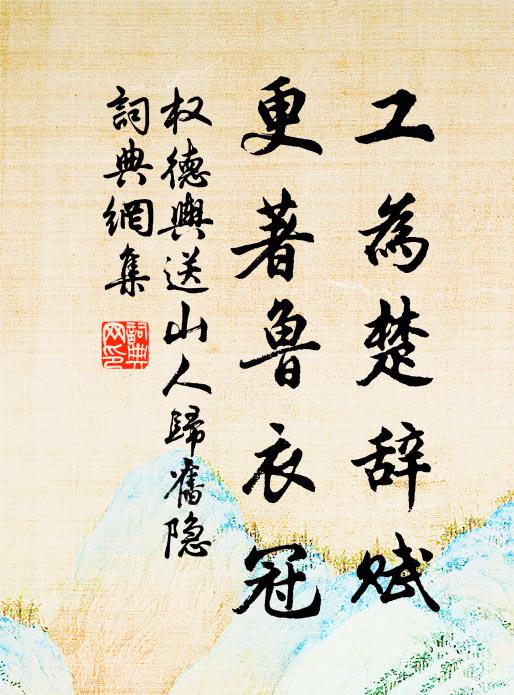 工為楚辞賦
更著魯衣冠
权德輿送山人歸舊隐
詞典網集
詞典网印